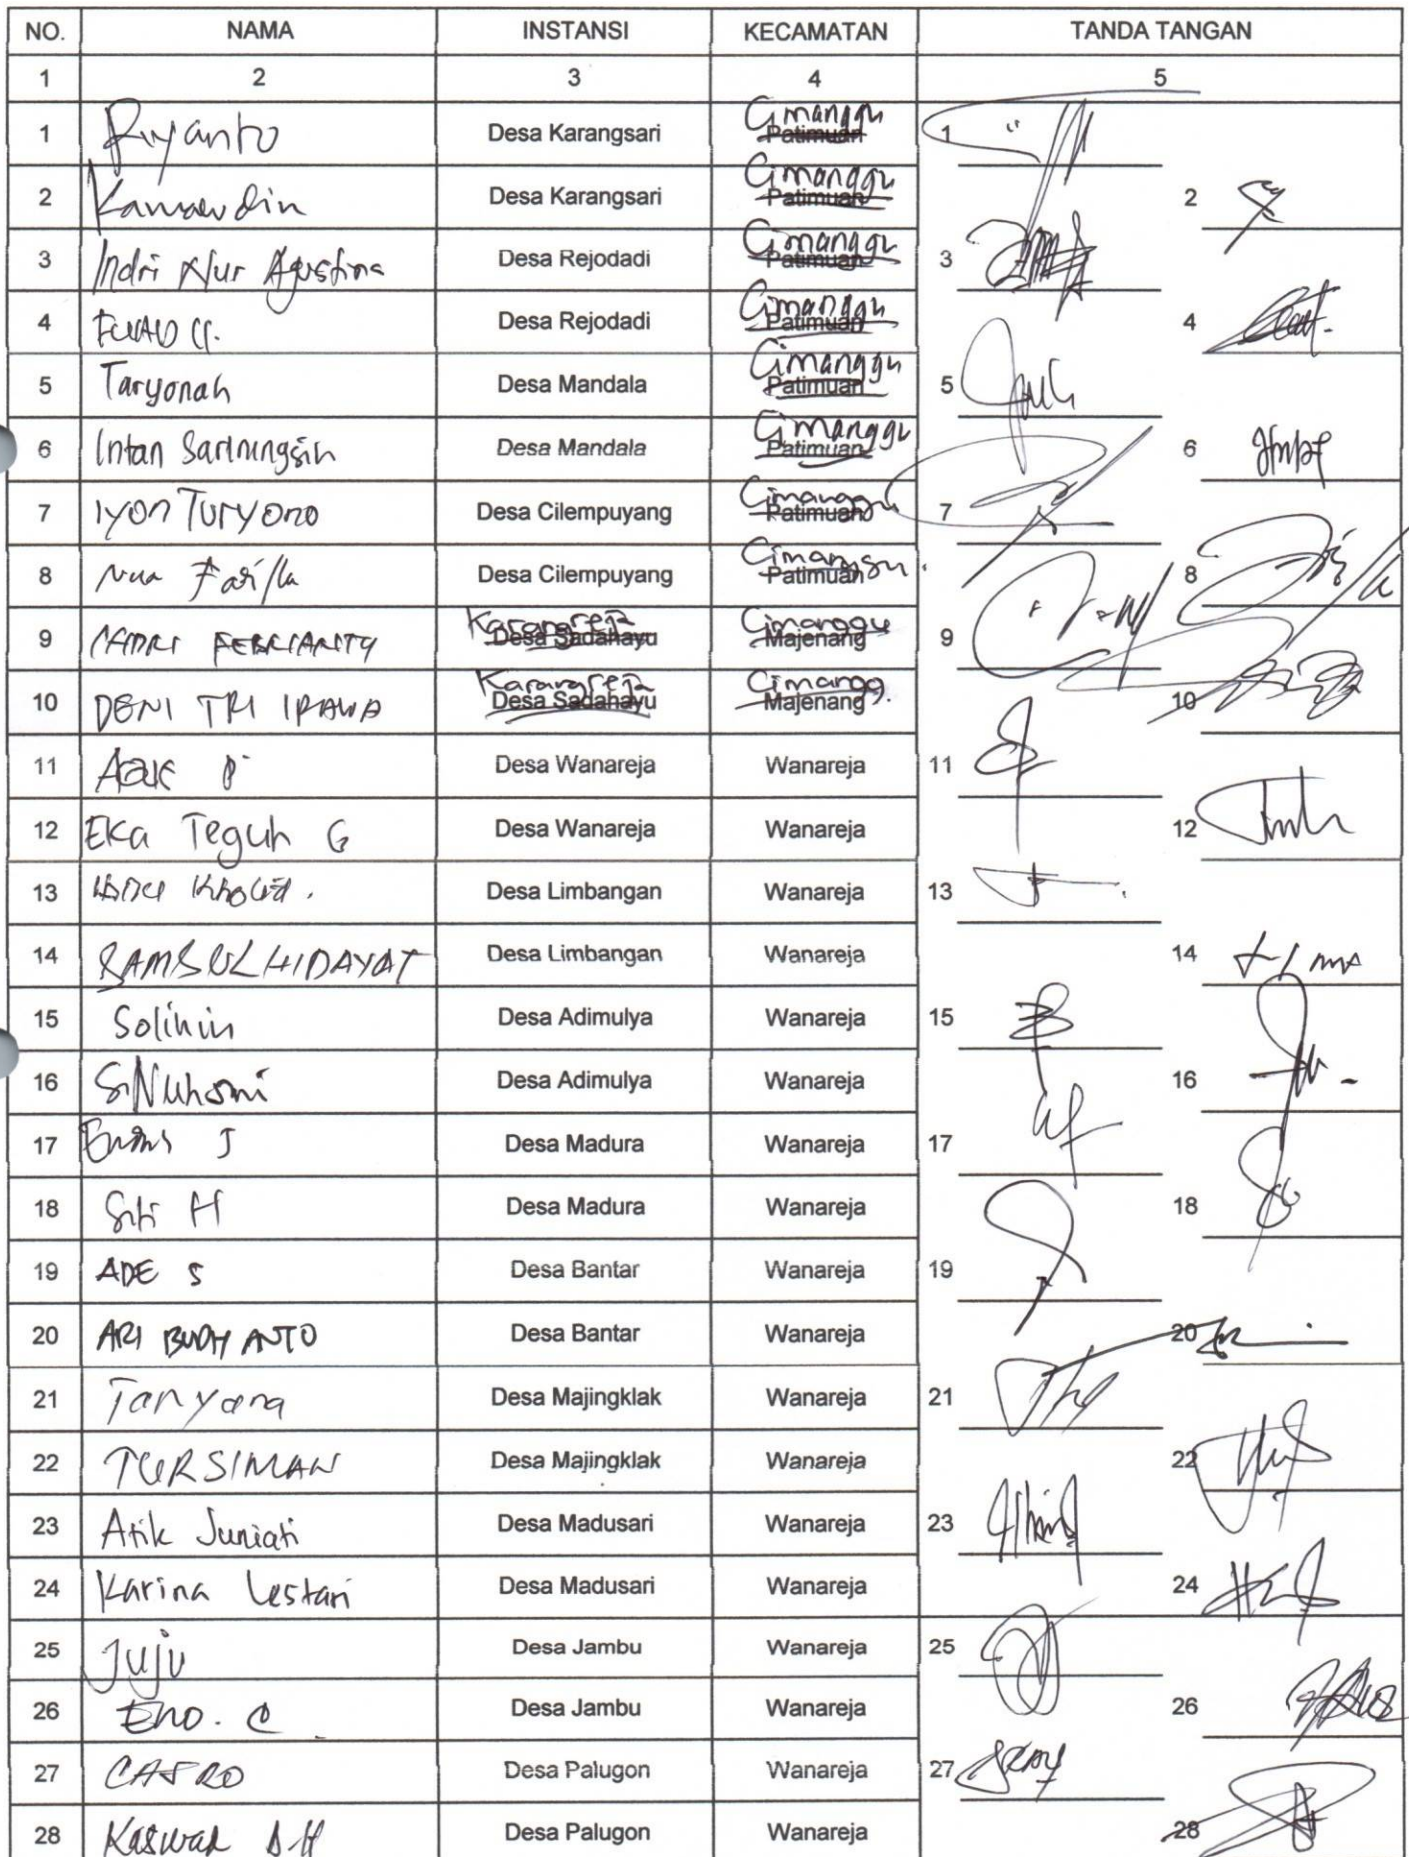 NO. NAMA INSTANSI KECAMATAN TANDA TANGAN
1 2 3 4 5
1 Riyanto Desa Karangsari Cimanggu Patimuan 1
2 Kamarudin Desa Karangsari Cimanggu Patimuan 2
3 Indri Nur Agustina Desa Rejodadi Cimanggu Patimuan 3
4 Desa Rejodadi Cimanggu Patimuan 4
5 Taryonah Desa Mandala Cimanggu Patimuan 5
6 Intan Sariningsih Desa Mandala Cimanggu Patimuan 6
7 Iyon Turyono Desa Cilempuyang Cimanggu Patimuan 7
8 Desa Cilempuyang Cimanggu Patimuan 8
9 Karangreja Desa Sadahayu Cimanggu Majenang 9
10 DENI TRI IRAWA Karangreja Desa Sadahayu Cimangg. Majenang 10
11 Desa Wanareja Wanareja 11
12 Eka Teguh G Desa Wanareja Wanareja 12
13 Desa Limbangan Wanareja 13
14 SAMSUL HIDAYAT Desa Limbangan Wanareja 14
15 Solihin Desa Adimulya Wanareja 15
16 Desa Adimulya Wanareja 16
17 Desa Madura Wanareja 17
18 Siti H Desa Madura Wanareja 18
19 ADE S Desa Bantar Wanareja 19
20 ARI BUDHYANTO Desa Bantar Wanareja 20
21 Tanyana Desa Majingklak Wanareja 21
22 TURSIMAN Desa Majingklak Wanareja 22
23 Atik Juniati Desa Madusari Wanareja 23
24 Karina Lestari Desa Madusari Wanareja 24
25 Juju Desa Jambu Wanareja 25
26 Eno. C Desa Jambu Wanareja 26
27 CASRO Desa Palugon Wanareja 27
28 Desa Palugon Wanareja 28